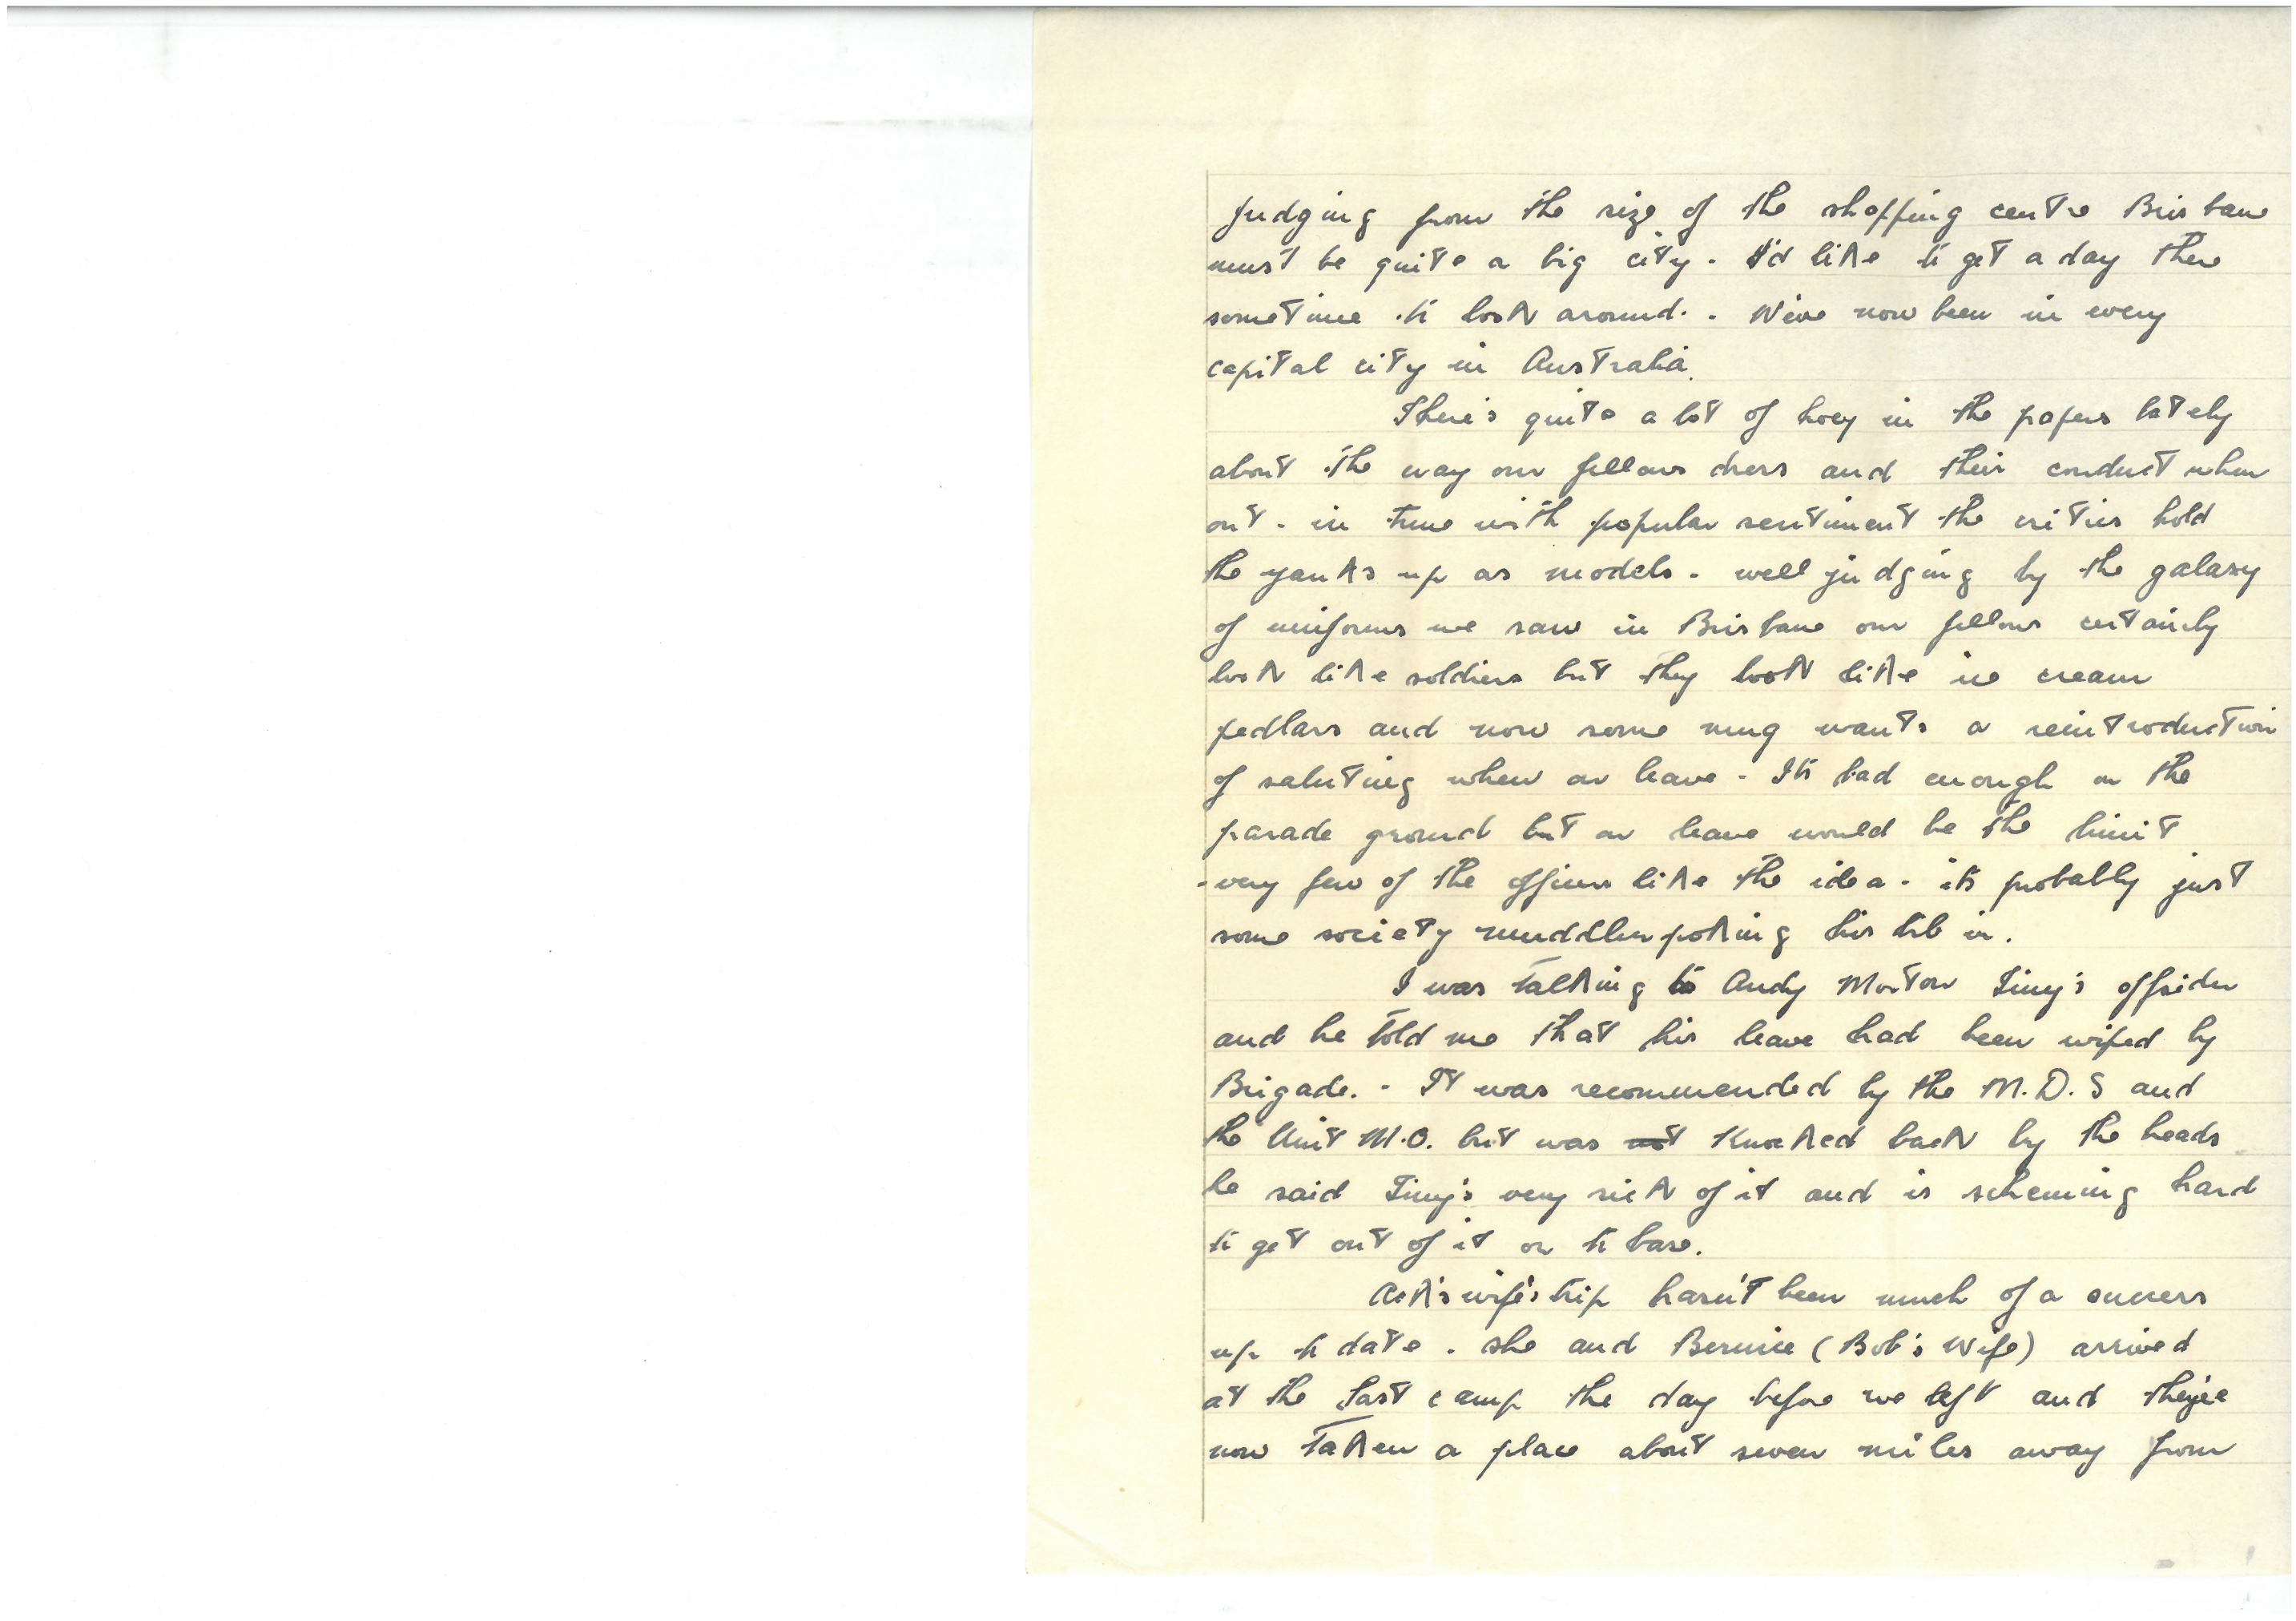 judging from the size of the shopping centre Brisbane
must be quite a big city. I'd like to get a day there
sometime to look around. . We've now been in every
capital city in Australia.
There's quite a lot of hooey in the papers lately
about the way our fellows dress and their conduct when
out. in tune with popular sentiment the critics hold
the yanks up as models. well judging by the galaxy
of uniforms we saw in Brisbane our fellows certainly
look like soldiers but they look like ice cream
pedlars and now some mug wants a reintroduction
of saluting when on leave. It's bad enough on the
parade ground but on leave would be the limit
- very few of the officers like the idea. its probably just
some society muddler poking his bib in.
I was talking to Andy Morton Tiny's offsider
and he told me that his leave had been wiped by
Brigade. - It was recommended by the M.D.S and
the Unit M.O. but was not knocked back by the heads
he said Tiny's very sick of it and is scheming hard
to get out of it or to base.
wife's trip hasn't been much of a success
up to date. she and Bernice (Bob's Wife) arrived
at the last camp the day before we left and they've
now taken a place about seven miles away from